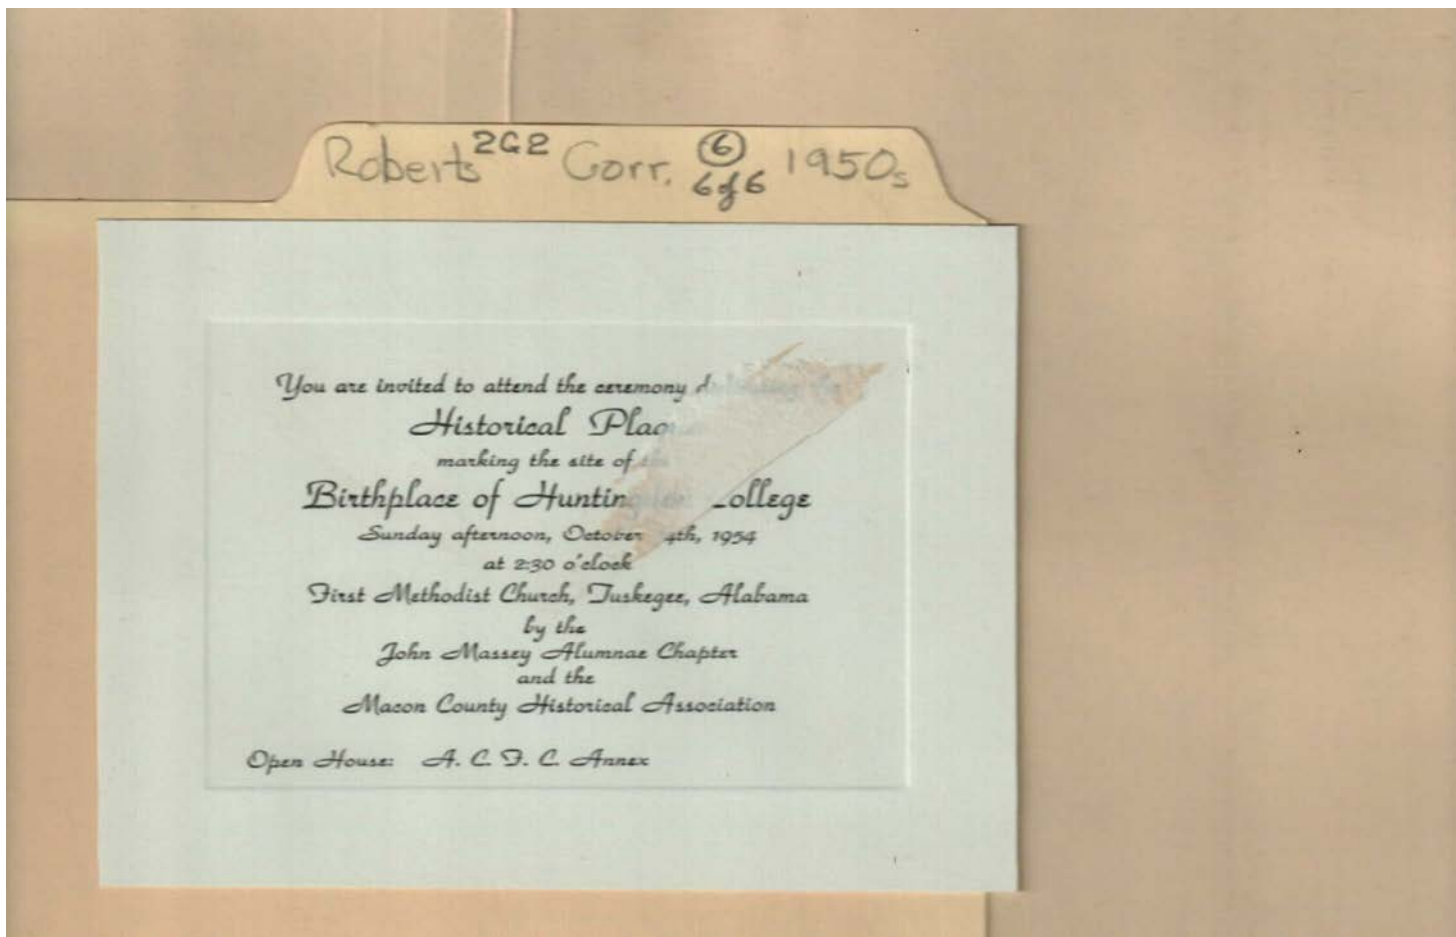 Roberts 2G2 Corr. 6 1950s
6 of 6
You are invited to attend the ceremony
Historical Plaque
marking the site of the
Birthplace of Huntingdon College
Sunday afternoon, October 4th, 1954
at 2:30 o'clock
First Methodist Church, Tuskegee, Alabama
by the
John Massey Alumnae Chapter
and the
Macon County Historical Association
Open House: A. C. F. C. Annex